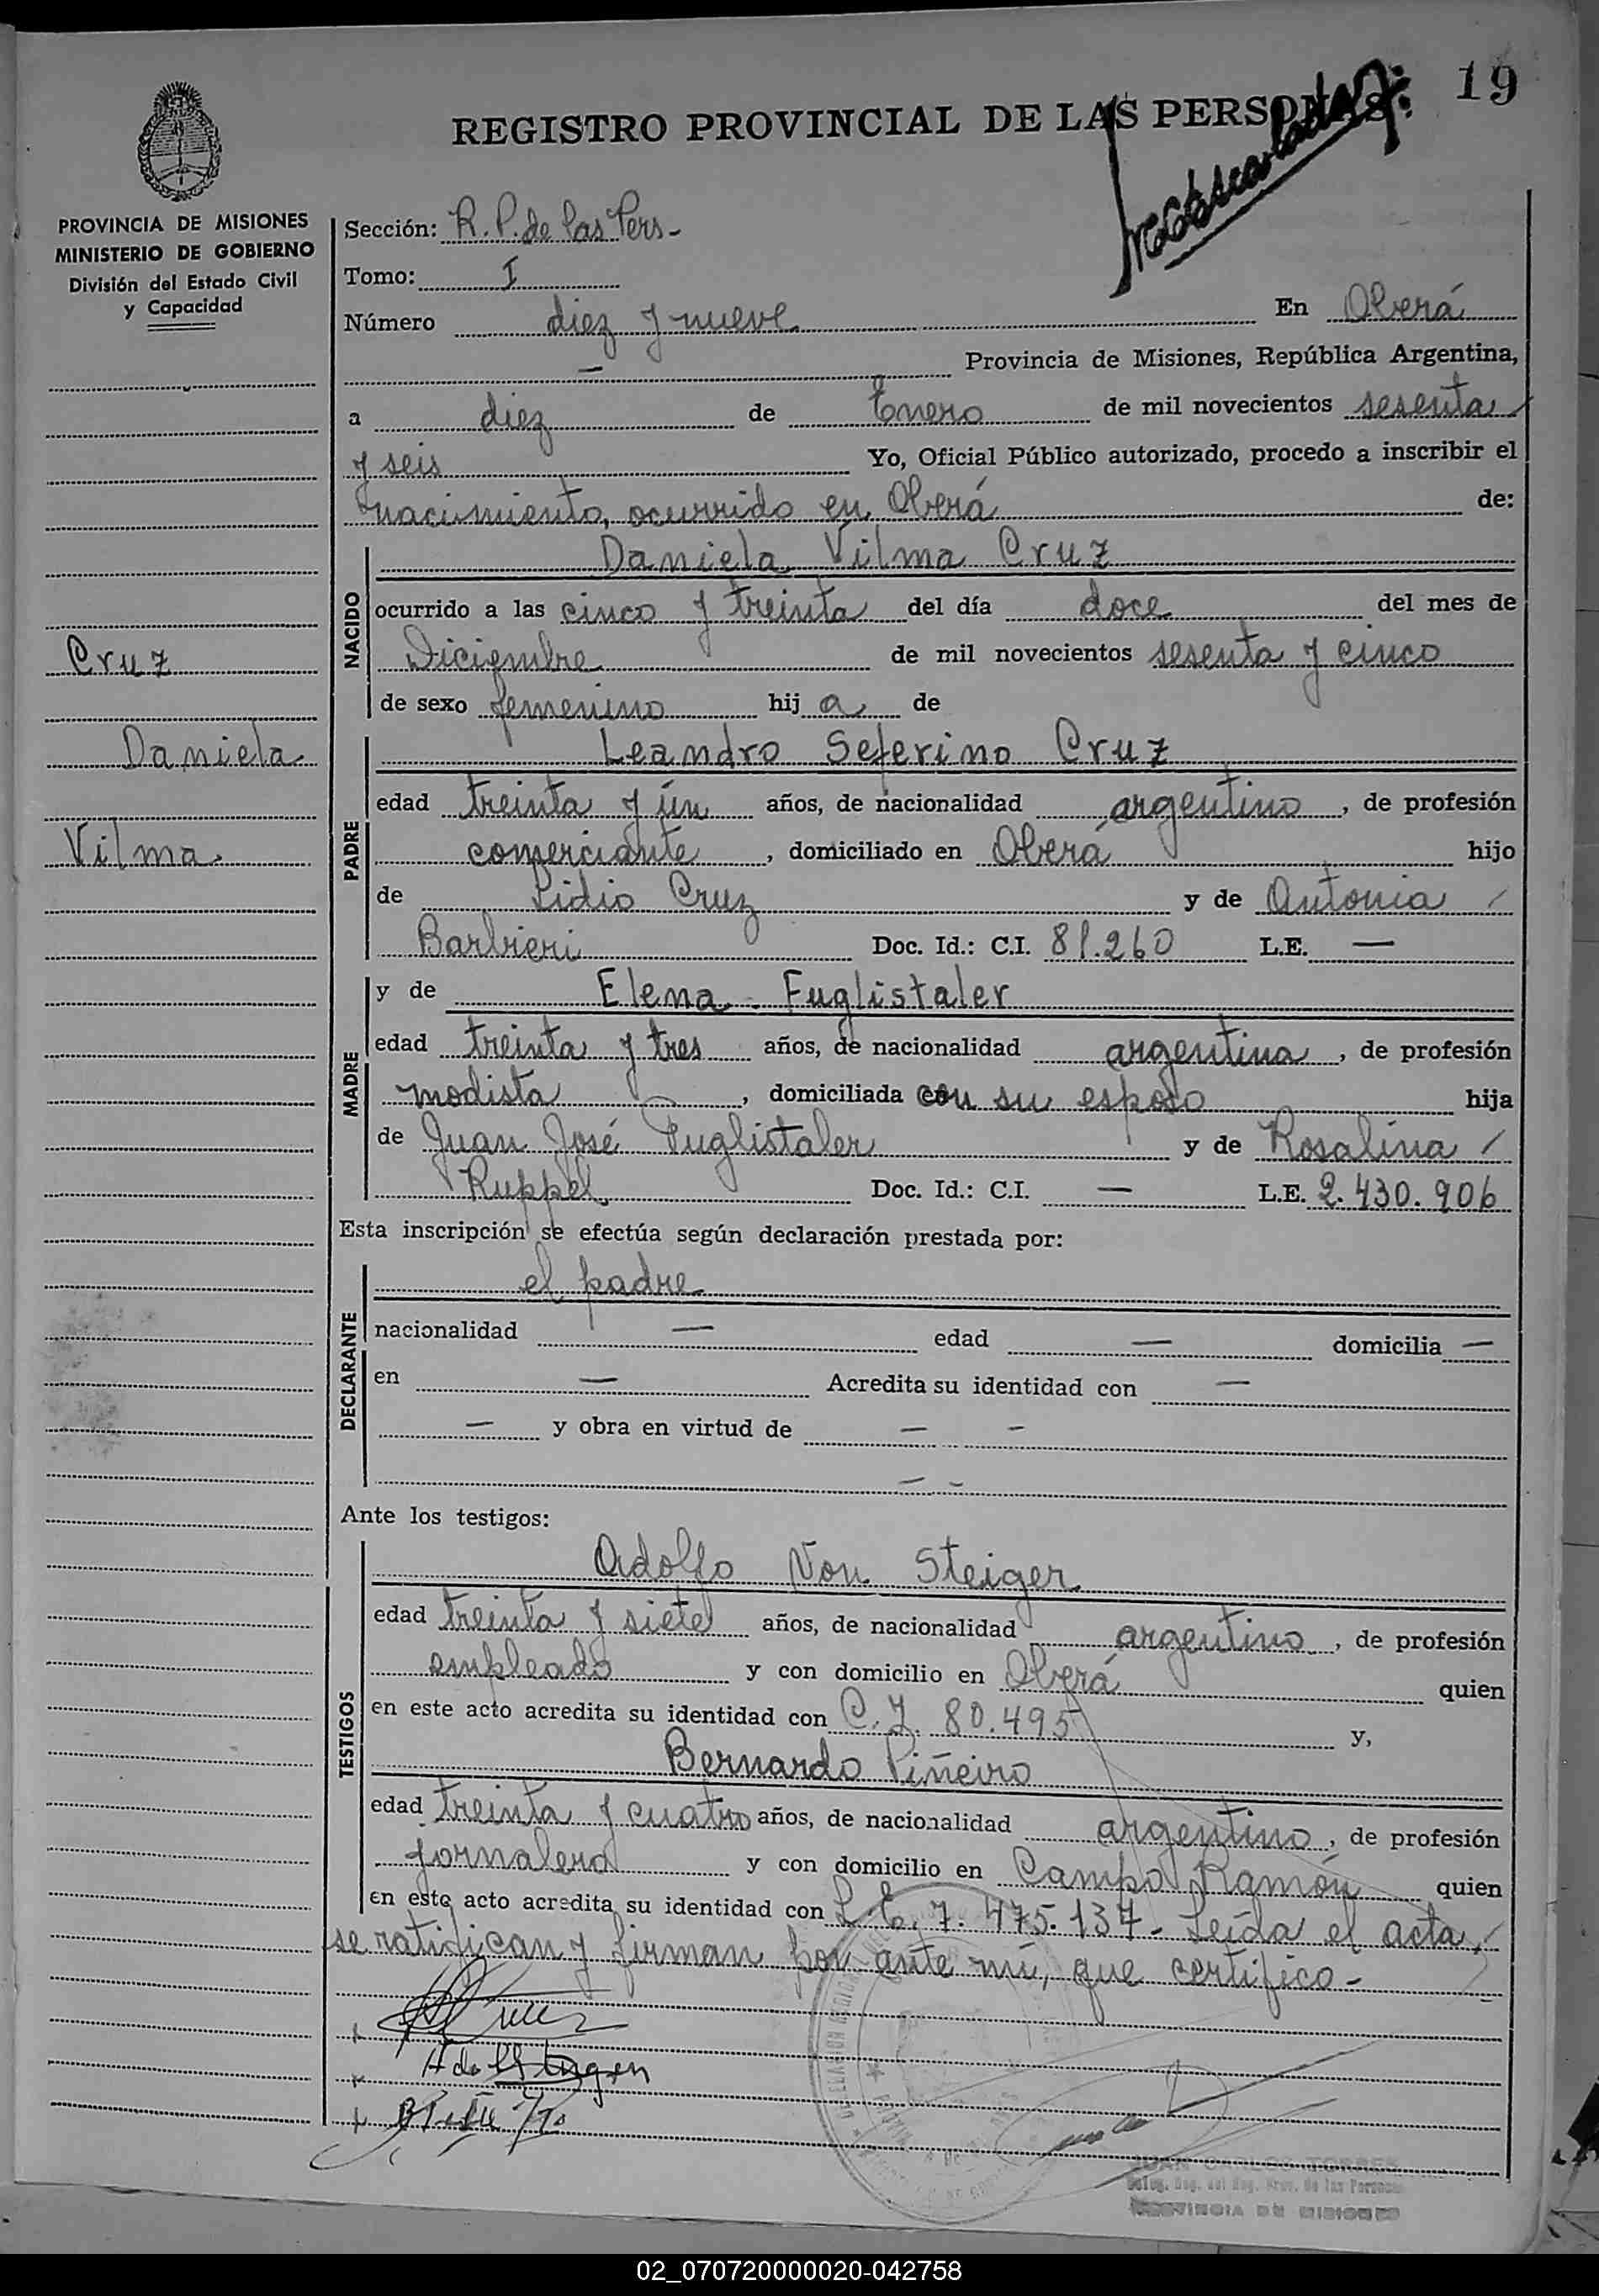 19
REGISTRO PROVINCIAL DE LAS PERSONAS
PROVINCIA DE MISIONES
MINISTERIO DE GOBIERNO
División del Estado Civil
y Capacidad
Sección: R. P. de las Pers-
Tomo: I
Número diez y nueve En Oberá
— Provincia de Misiones, República Argentina,
a diez de Enero de mil novecientos sesenta
y seis Yo, Oficial Público autorizado, procedo a inscribir el
nacimiento, ocurrido en Oberá de:
NACIDO
Daniela Vilma Cruz
ocurrido a las cinco y treinta del día doce del mes de
Diciembre de mil novecientos sesenta y cinco
de sexo femenino hij a de
Cruz
Daniela
Vilma
PADRE
Leandro Seferino Cruz
edad treinta y ún años, de nacionalidad argentino, de profesión
comerciante, domiciliado en Oberá hijo
de Lidio Cruz y de Antonia /
Barbieri Doc. Id.: C.I. 81.260 L.E. —
MADRE
y de Elena Fuglistaler
edad treinta y tres años, de nacionalidad argentina, de profesión
modista, domiciliada con su esposo hija
de Juan José Fuglistaler y de Rosalina /
Ruppel Doc. Id.: C.I. — L.E. 2.430.906
Esta inscripción se efectúa según declaración prestada por:
DECLARANTE
el padre
nacionalidad — edad — domicilia —
en — Acredita su identidad con —
— y obra en virtud de — -
— -
Ante los testigos:
TESTIGOS
Adolfo Von Steiger
edad treinta y siete años, de nacionalidad argentino, de profesión
empleado y con domicilio en Oberá quien
en este acto acredita su identidad con C.I. 80.495 y,
Bernardo Piñeiro
edad treinta y cuatro años, de nacionalidad argentino, de profesión
jornalero y con domicilio en Campo Ramón quien
en este acto acredita su identidad con L.E. 7.475.137- Leída el acta /
se ratifican y firman por ante mí, que certifico-
Cruz
JUAN CARLOS TORRES
Deleg. Reg. del Reg. Prov. de las Personas
PROVINCIA DE MISIONES
02_070720000020-042758